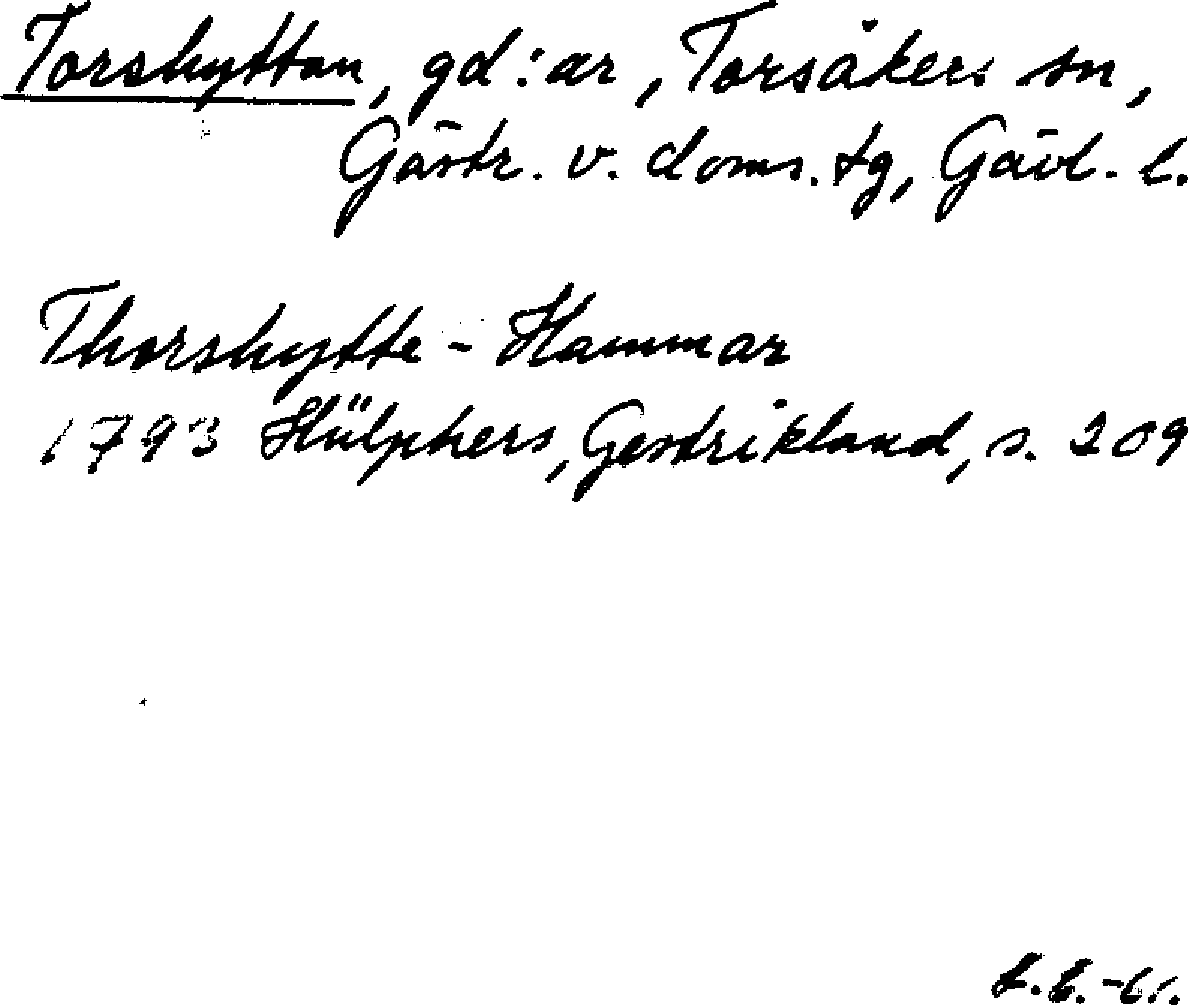 Torshyttan, gd:ar, Torsåkers sn,
Gästr. v. doms. tg, Gävl. l.
Thorshytte-Hammar
1793 Hülphers, Gestrikland, s. 209